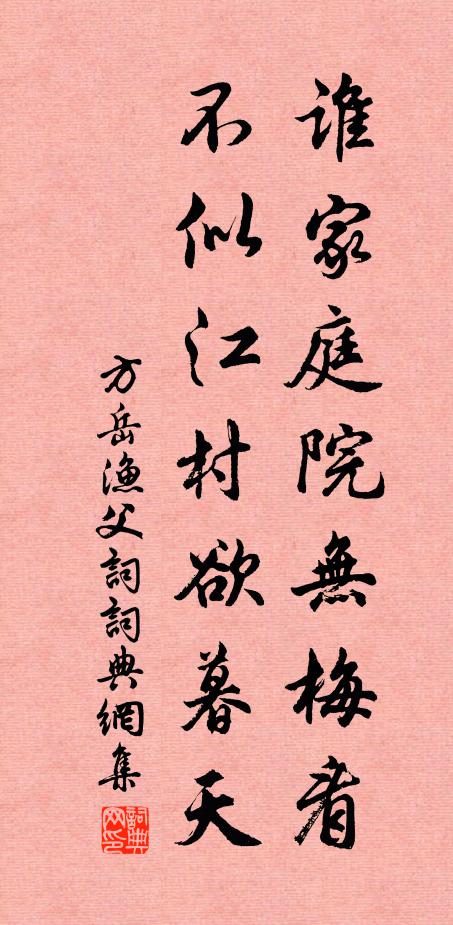 誰家庭院無梅看
不似江村欲暮天
方岳漁父詞詞典網集
詞典網印